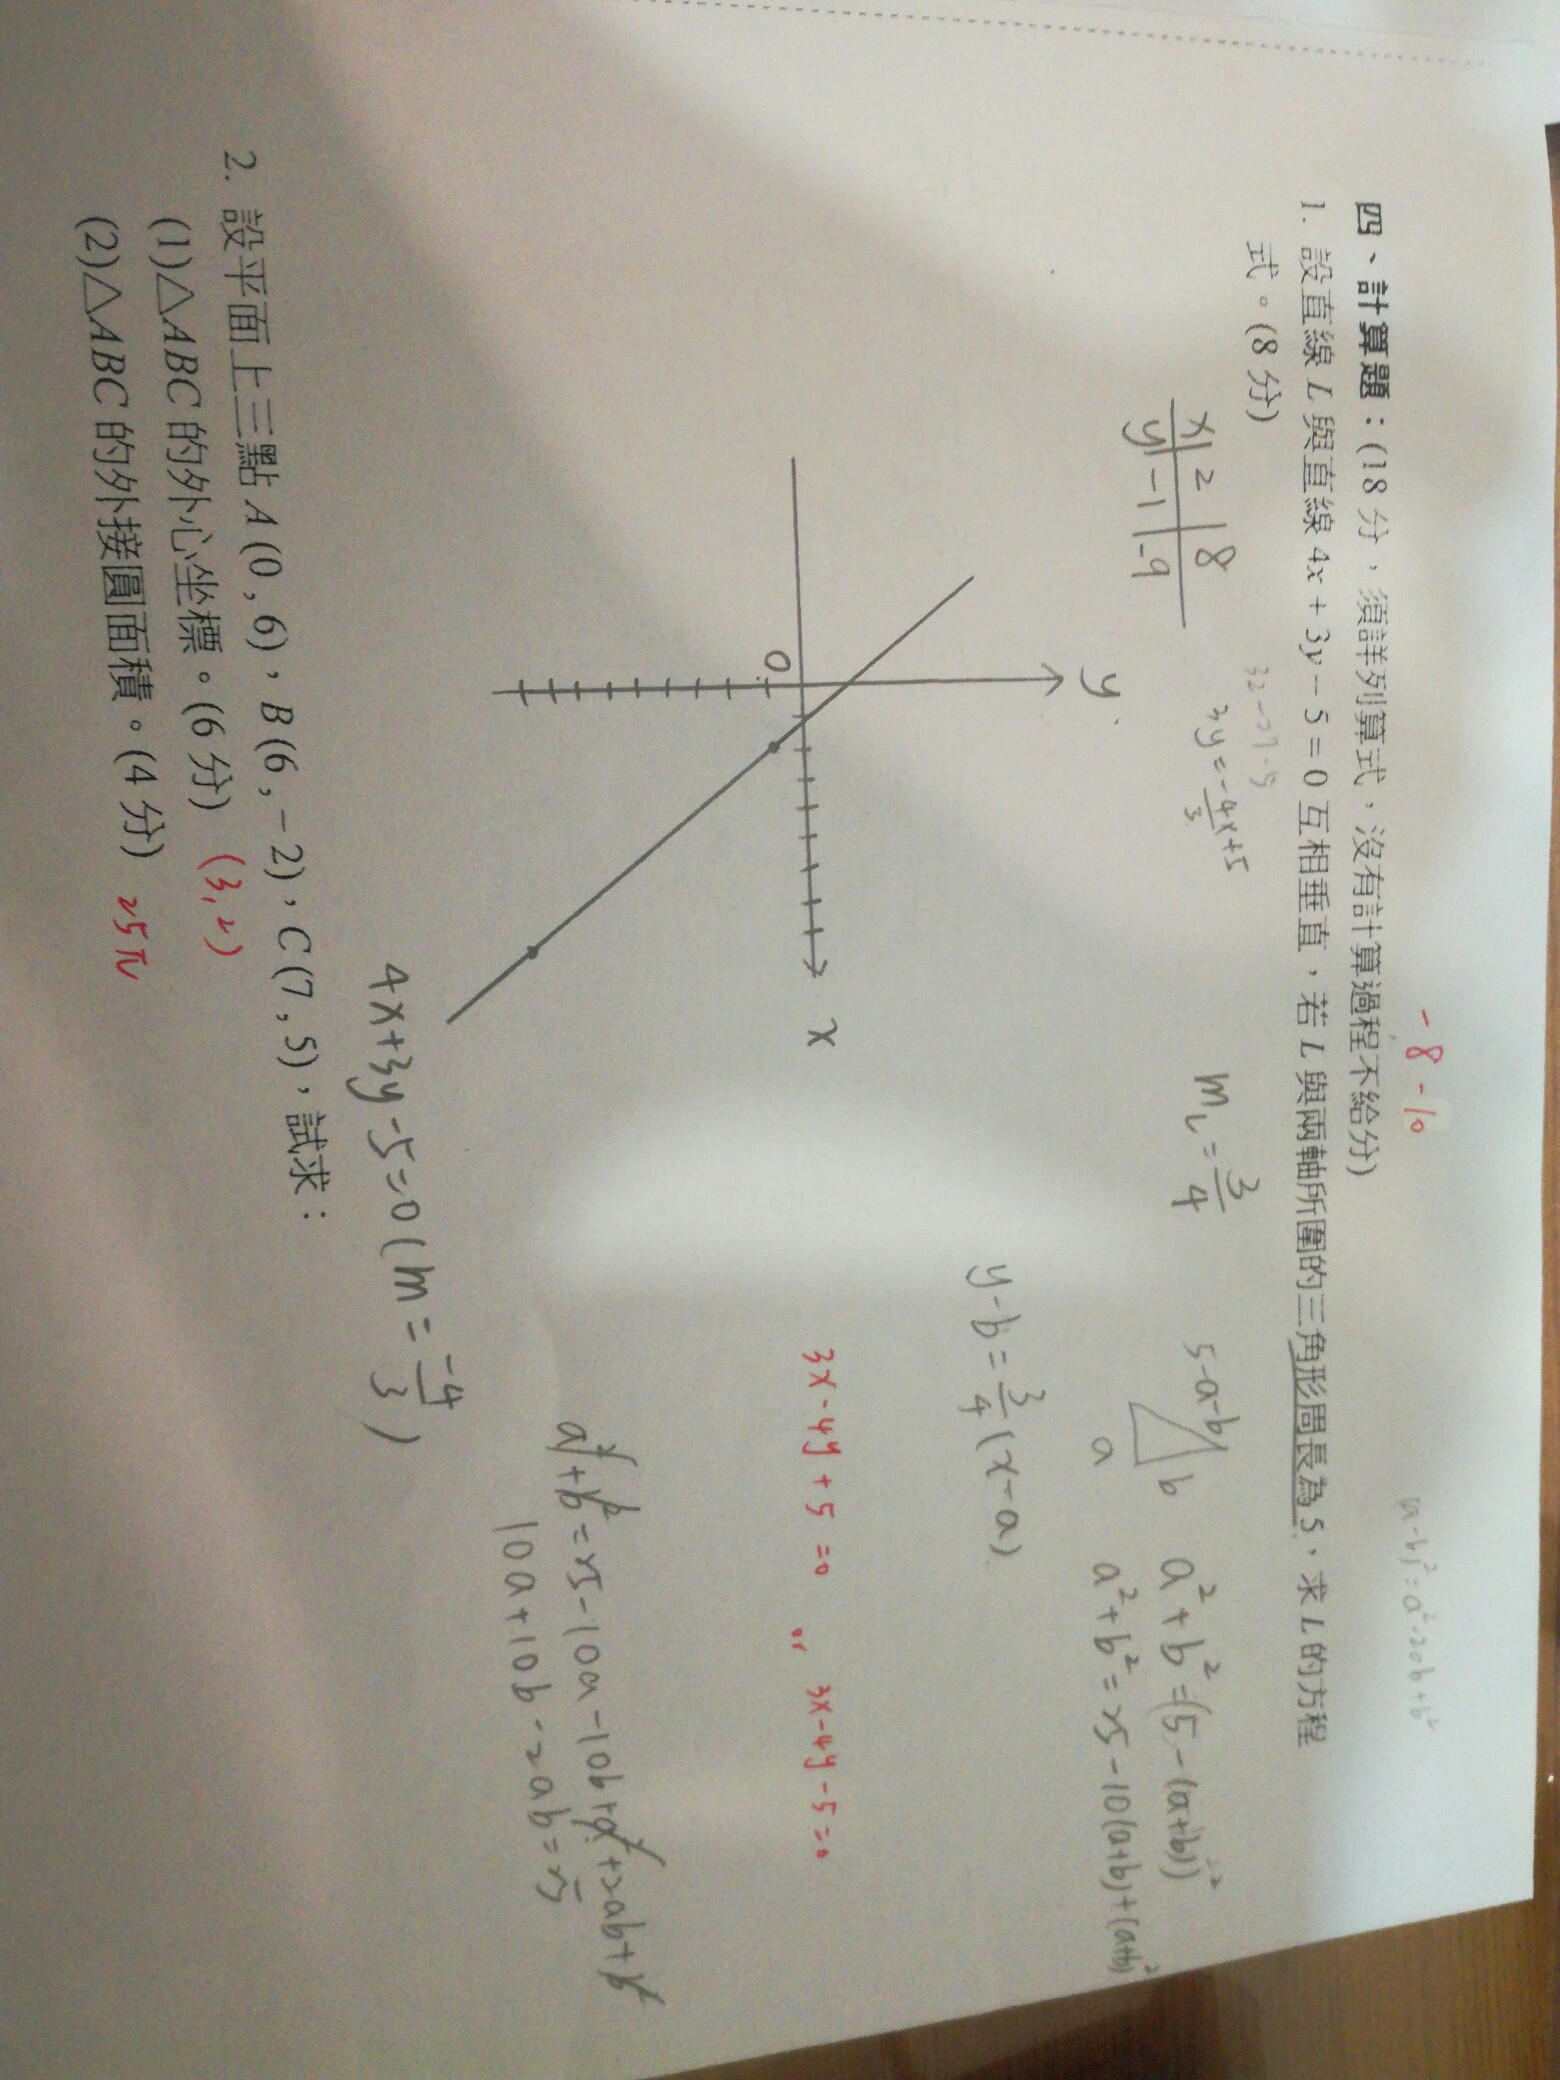 -8-10
(a-b)²=a²-2ab+b²
四、計算題：(18 分，須詳列算式，沒有計算過程不給分)
1. 設直線 L 與直線 4x + 3y − 5 = 0 互相垂直，若 L 與兩軸所圍的三角形周長為 5，求 L 的方程
式。(8 分)
32-27-5
3y = -4x+5
3
x 2 8
y -1 -9
m_L = 3/4
5-a-b
b
a
a²+b²=(5-(a+b))²
a²+b²=25-10(a+b)+(a+b)²
y-b=3/4(x-a)
y
x
0
3x-4y+5=0 or 3x-4y-5=0
a²+b²=25-10a-10b+a²+2ab+b²
10a+10b-2ab=25
4x+3y-5=0 (m=-4/3)
2. 設平面上三點 A(0 , 6)，B(6 , −2)，C(7 , 5)，試求：
(1)△ABC 的外心坐標。(6 分) (3,2)
(2)△ABC 的外接圓面積。(4 分) 25π